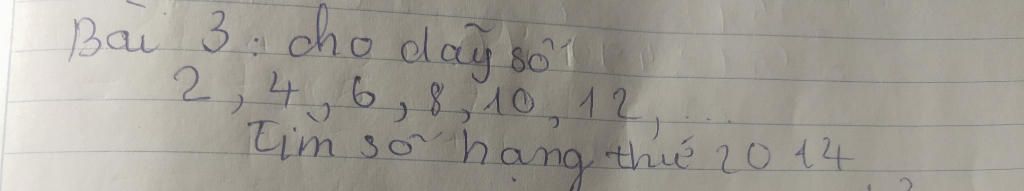 Bài 3: cho dãy số
2, 4, 6, 8, 10, 12, ...
Tìm số hạng thứ 2014